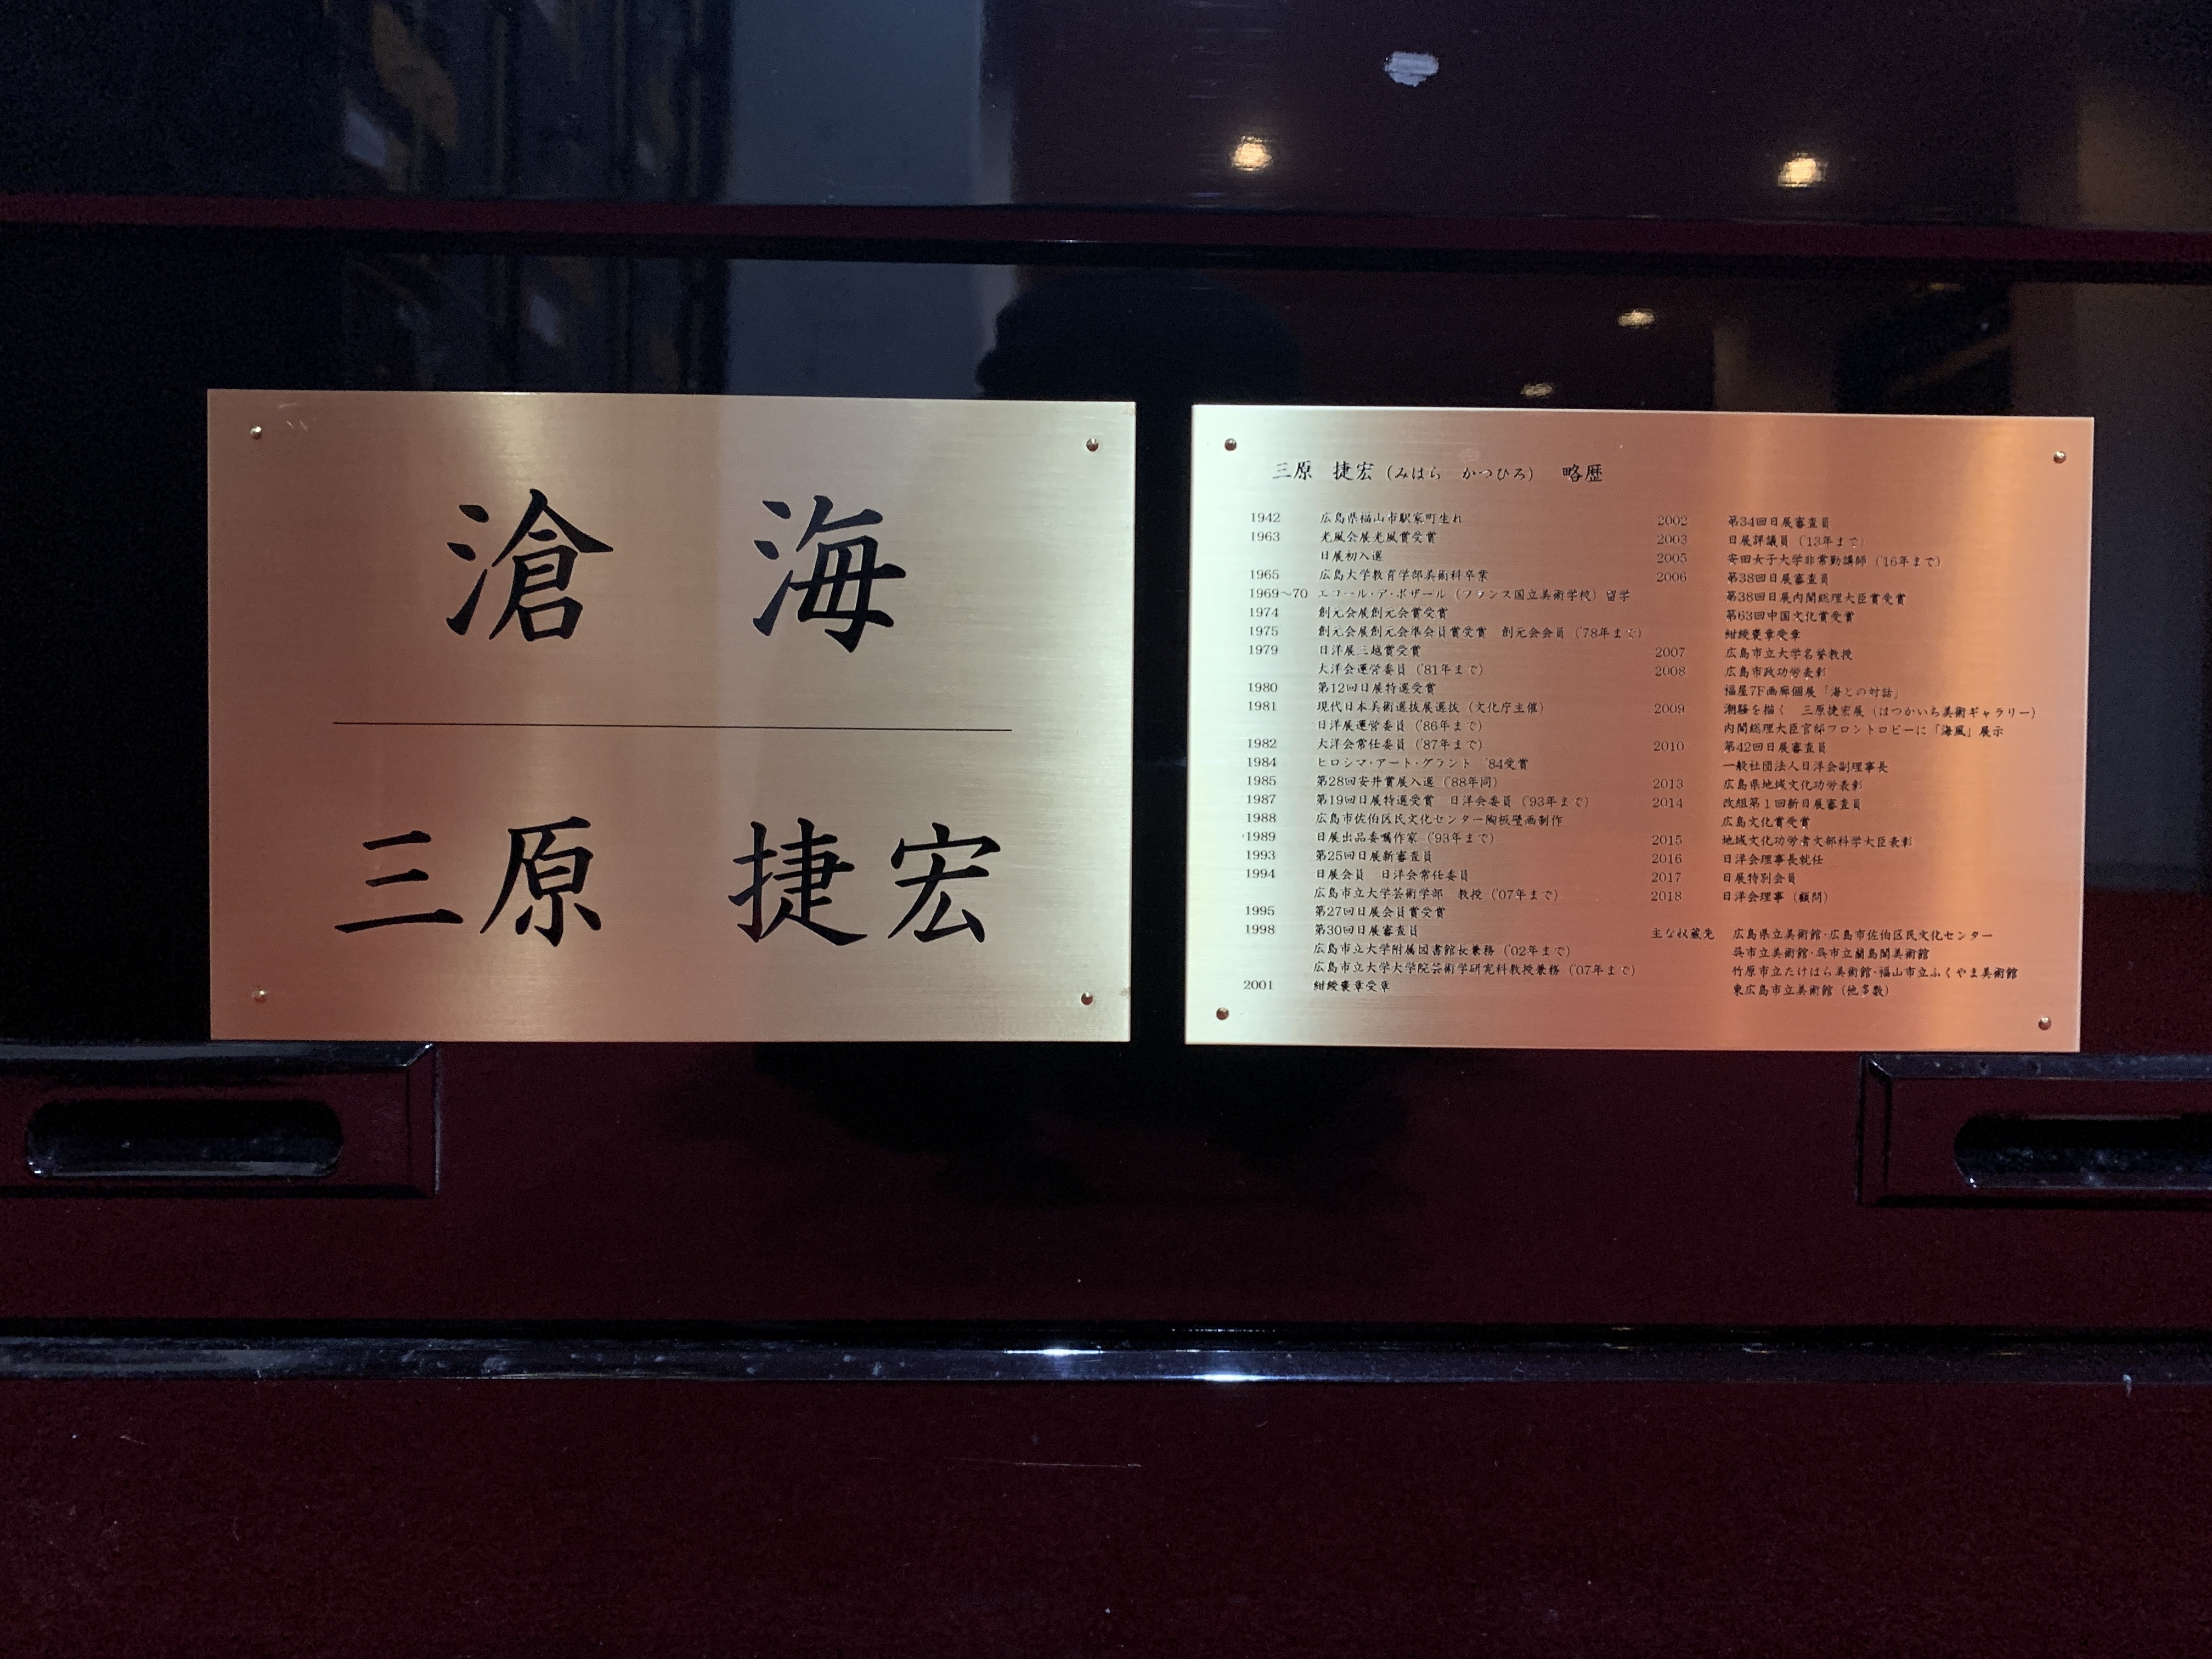 滄 海
三原 捷宏
三原 捷宏(みはら かつひろ) 略歴
1942 広島県福山市駅家町生れ
1963 光風会展光風賞受賞
日展初入選
1965 広島大学教育学部美術科卒業
1969~70 エコール・ア・ボザール(フランス国立美術学校)留学
1974 創元会展創元会賞受賞
1975 創元会展創元会準会員賞受賞 創元会会員('78年まで)
1979 日洋展三越賞受賞
大洋会運営委員('81年まで)
1980 第12回日展特選受賞
1981 現代日本美術選抜展選抜(文化庁主催)
日洋展運営委員('86年まで)
1982 大洋会常任委員('87年まで)
1984 ヒロシマ・アート・グラント '84受賞
1985 第28回安井賞展入選('88年同)
1987 第19回日展特選受賞 日洋会委員('93年まで)
1988 広島市佐伯区民文化センター陶板壁画制作
1989 日展出品委嘱作家('93年まで)
1993 第25回日展新審査員
1994 日展会員 日洋会常任委員
広島市立大学芸術学部 教授('07年まで)
1995 第27回日展会員賞受賞
1998 第30回日展審査員
広島市立大学附属図書館長兼務('02年まで)
広島市立大学大学院芸術学研究科教授兼務('07年まで)
2001 紺綬褒章受章
2002 第34回日展審査員
2003 日展評議員('13年まで)
2005 安田女子大学非常勤講師('16年まで)
2006 第38回日展審査員
第38回日展内閣総理大臣賞受賞
第63回中国文化賞受賞
紺綬褒章受章
2007 広島市立大学名誉教授
2008 広島市政功労表彰
福屋7F画廊個展「海との対話」
2009 潮騒を描く 三原捷宏展(はつかいち美術ギャラリー)
内閣総理大臣官邸フロントロビーに「海風」展示
2010 第42回日展審査員
一般社団法人日洋会副理事長
2013 広島県地域文化功労表彰
2014 改組第1回新日展審査員
広島文化賞受賞
2015 地域文化功労者文部科学大臣表彰
2016 日洋会理事長就任
2017 日展特別会員
2018 日洋会理事(顧問)
主な収蔵先 広島県立美術館・広島市佐伯区民文化センター
呉市立美術館・呉市立蘭島閣美術館
竹原市立たけはら美術館・福山市立ふくやま美術館
東広島市立美術館(他多数)